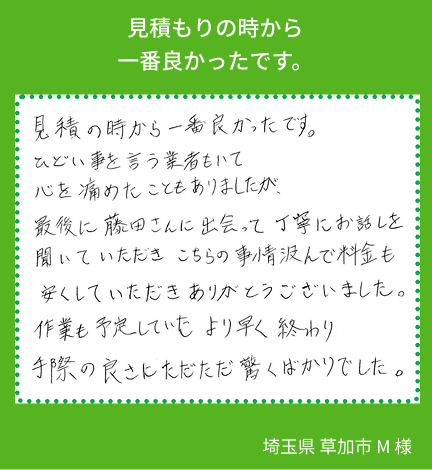 見積もりの時から
一番良かったです。
見積の時から一番良かったです。
ひどい事を言う業者もいて
心を痛めたこともありましたが、
最後に藤田さんに出会って丁寧にお話しを
聞いていただきこちらの事情汲んで料金も
安くしていただきありがとうございました。
作業も予定していたより早く終わり
手際の良さにただただ驚くばかりでした。
埼玉県 草加市 M 様